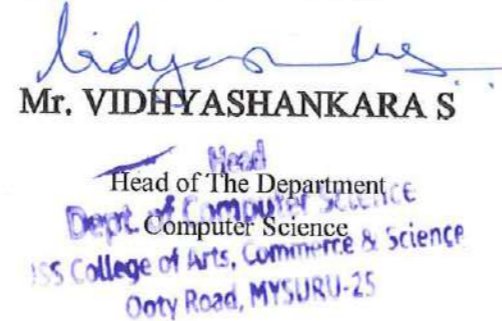 Mr. VIDHYASHANKARA S
Head
Head of The Department
Dept. of Computer Science
Computer Science
JSS College of Arts, Commerce & Science
Ooty Road, MYSURU-25